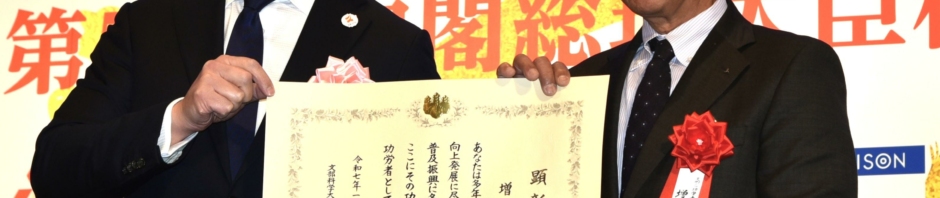 第 閣総 臣
顕
増
あなたは多年
向上発展に尽
普及振興に
ここにその功
功労者として
令和七年一
文部科学大
ISON
増